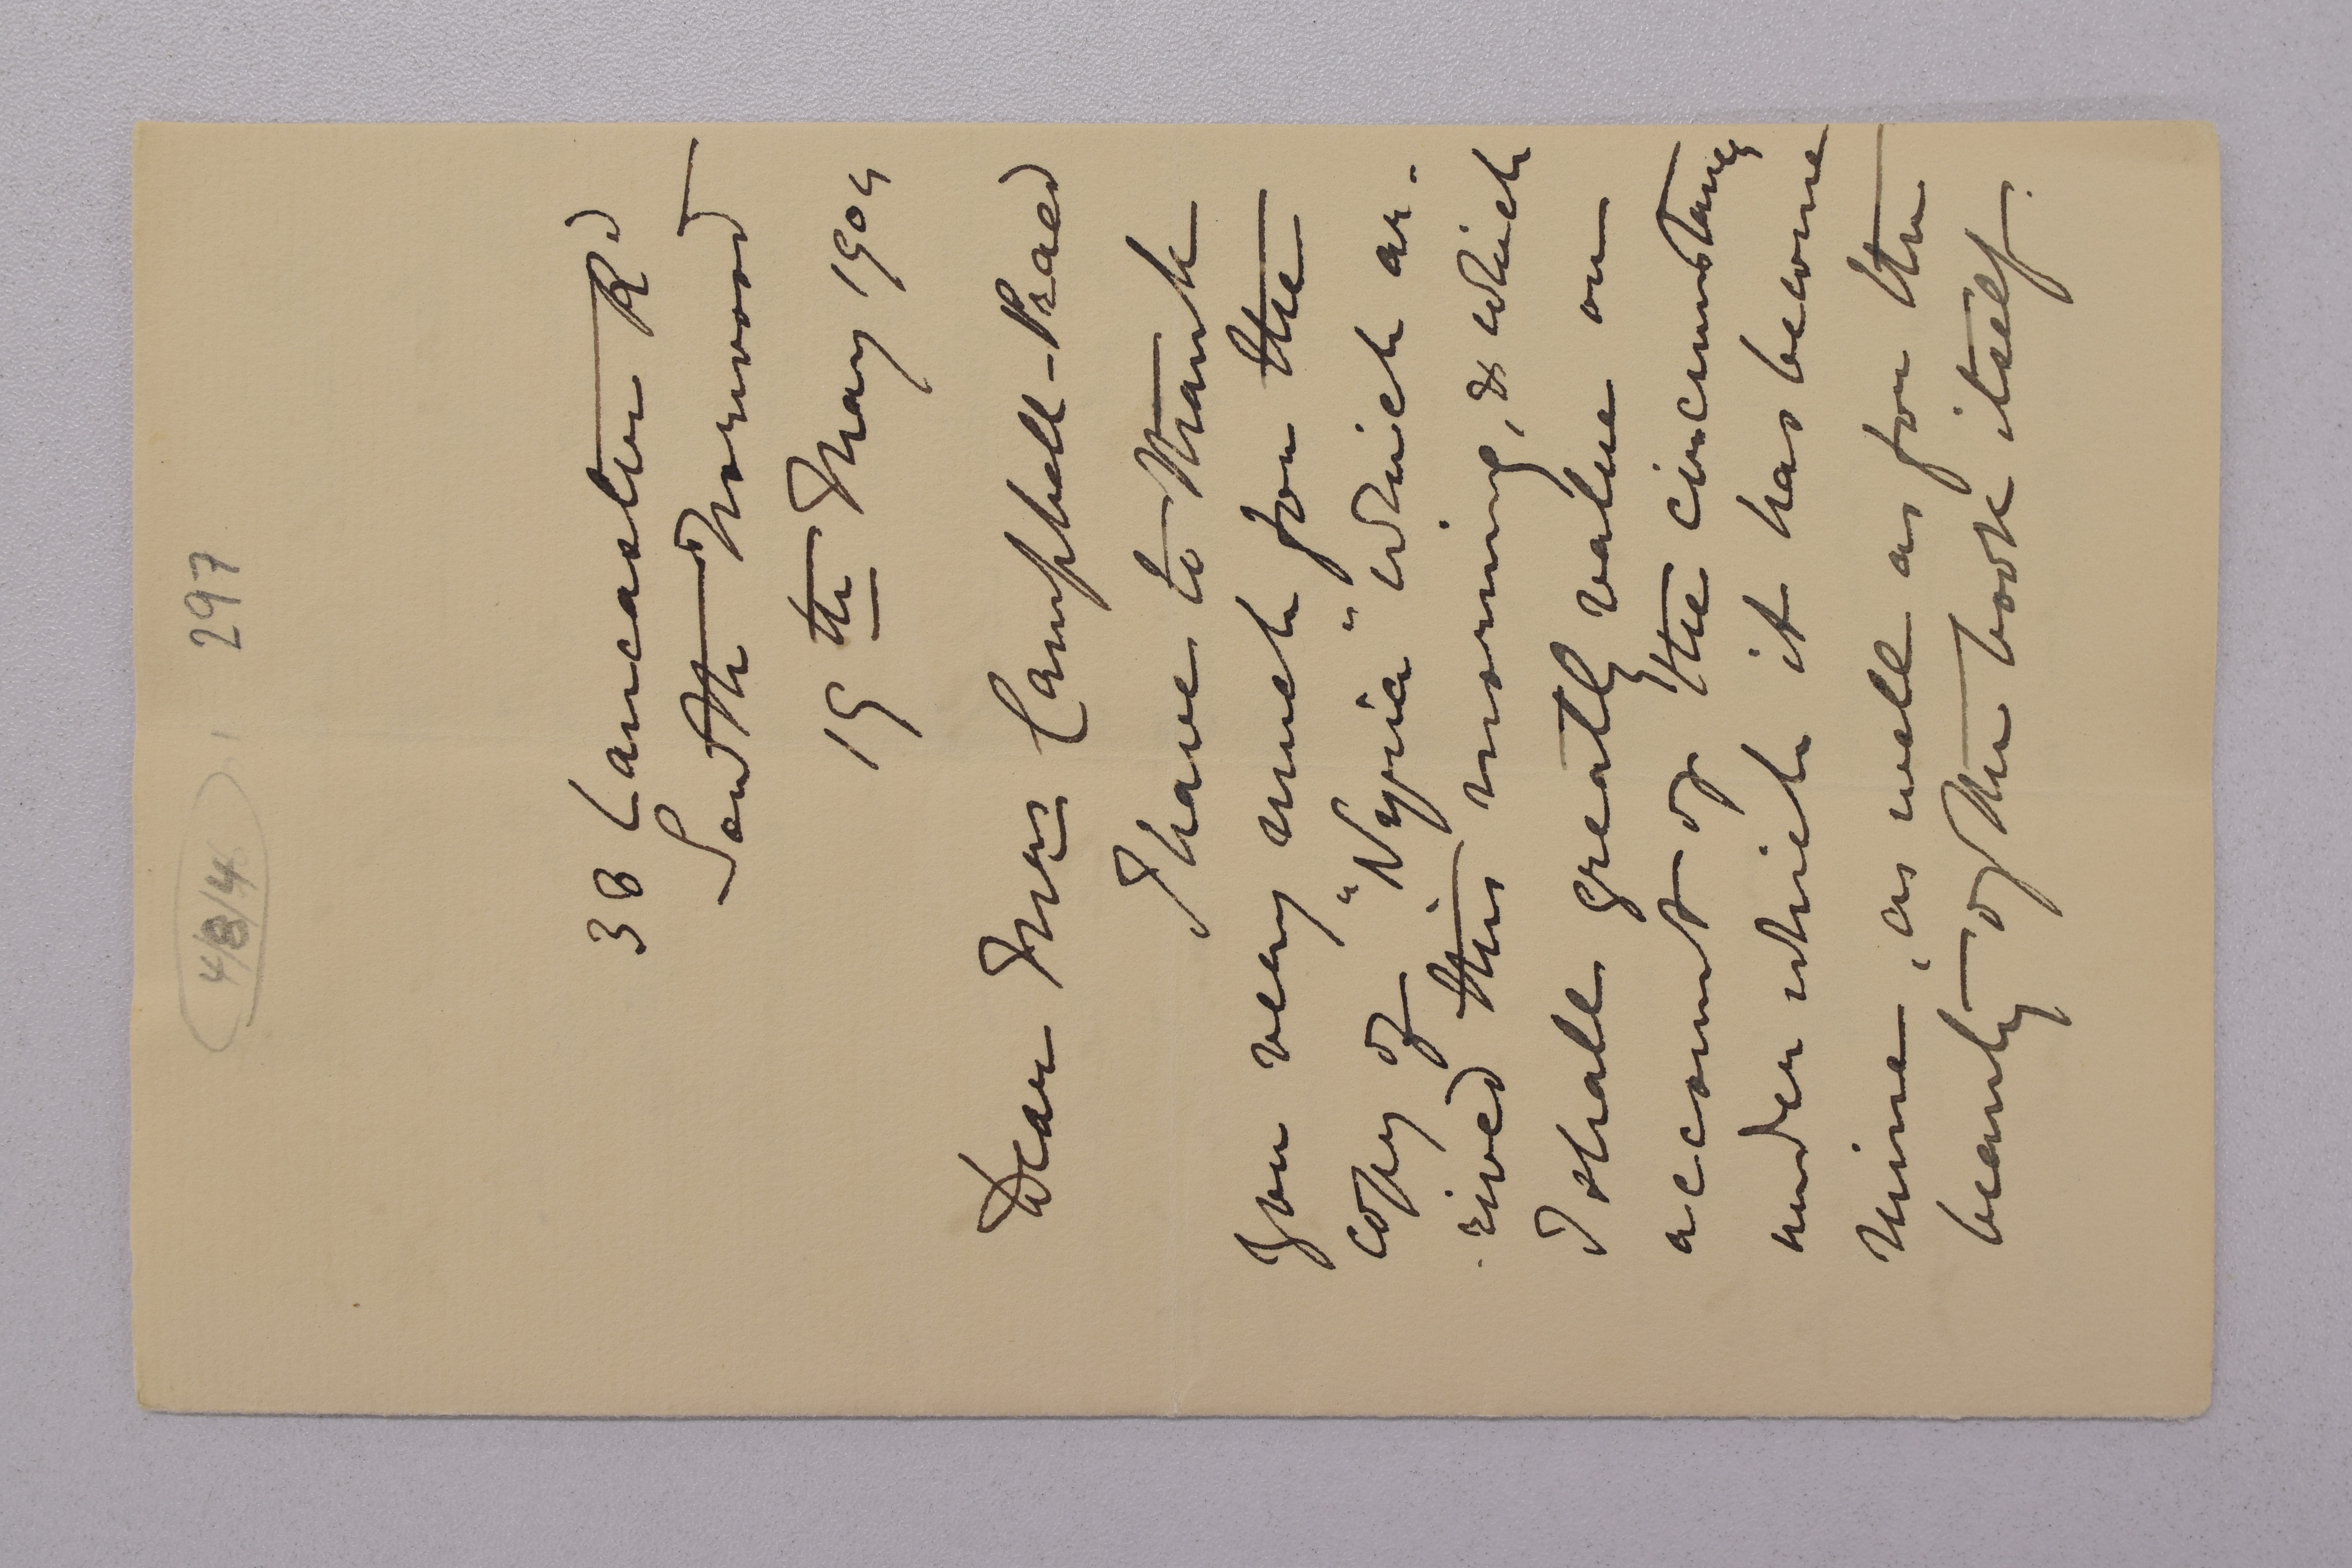 4/8/4
297
38 Lancaster Rd
South Norwood
19th May 1904
Dear Mrs Campbell-Praed
I have to thank
you very much for the
copy of "Nyria" which ar-
-rived this morning, & which
I shall greatly value on
account of the circumstances
under which it has become
mine, as well as for the
beauty of the book itself.